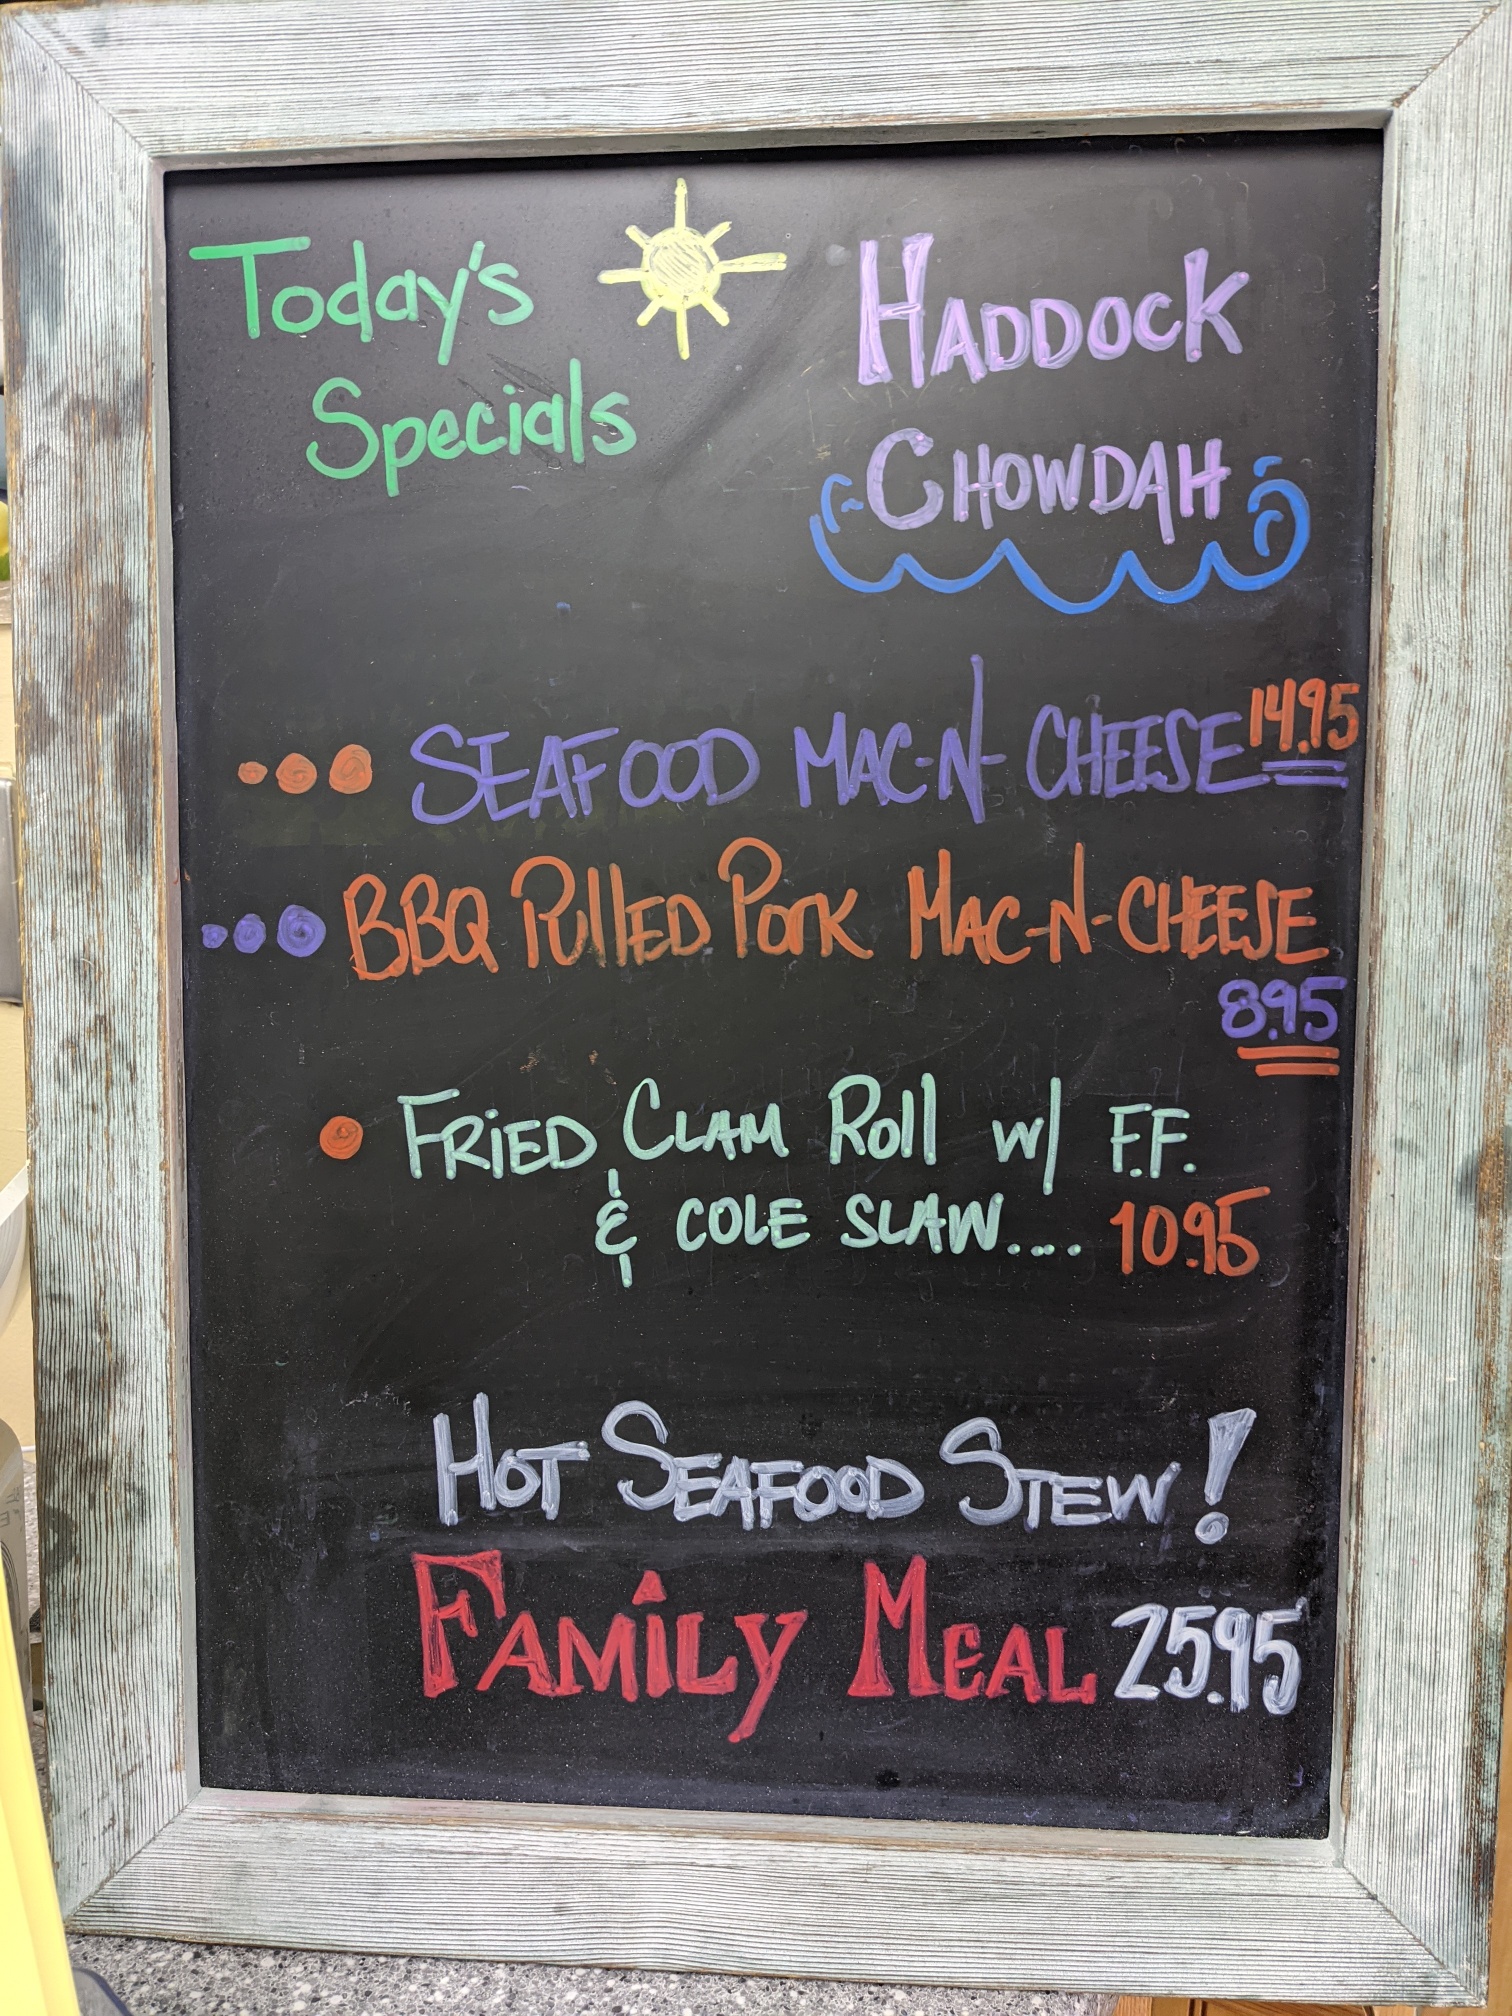 Today's
Specials
HADDOCK
CHOWDAH
SEAFOOD MAC-N-CHEESE 14.95
BBQ PUllED PORK MAC-N-CHEESE
8.95
FRiED CLAM Roll w/ F.F.
& COLE SLAW.... 10.95
HOT SEAFOOD STEW!
FAMiLY MEAL 25.95